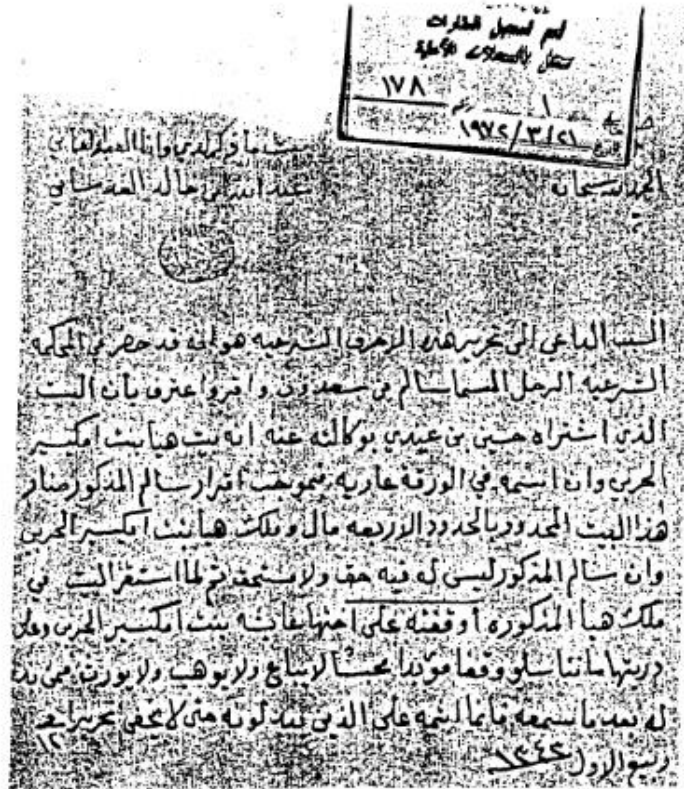 قسم تسجيل العقارات
سجل بالسجلات
١ رقم ١٧٨
٢١/٣/١٩٧٢
ثبت ما ذكر لدي وانا العبد الفاني
الحمد لله سبحانه
عبد الله بن خالد العدساني
السبب الداعي الى تحرير هذه الاحرف الشرعيه هو انه قد حضر في المحكمه
الشرعيه الرجل المسما سالم بن سعدون واقر واعترف بأن البيت
الذي اشتراه حسين بن عيدي بوكالته عنه انه بيت هيا بنت امكيسر
الحربي وان اسمه في الورقة عاريه فبموجب اقرار سالم المذكور صار
هذا البيت المحدود بالحدود الاربعه مال وملك هيا بنت امكيسر الحربي
وان سالم المذكور ليس له فيه حق ولا مستحق ثم لما استقر البيت في
ملك هيا المذكوره أوقفته على اختها بنت امكيسر الحربي وعلى
ذريتها ما تناسلو وقفا مؤبدا لا يباع ولا يوهب ولا يورث فمن بد
له بعد ما سمعه فانما اثمه على الذين يبدلونه حتى لا يخفى تحريرا في
١٢ ربيع الاول ١٣٤٢